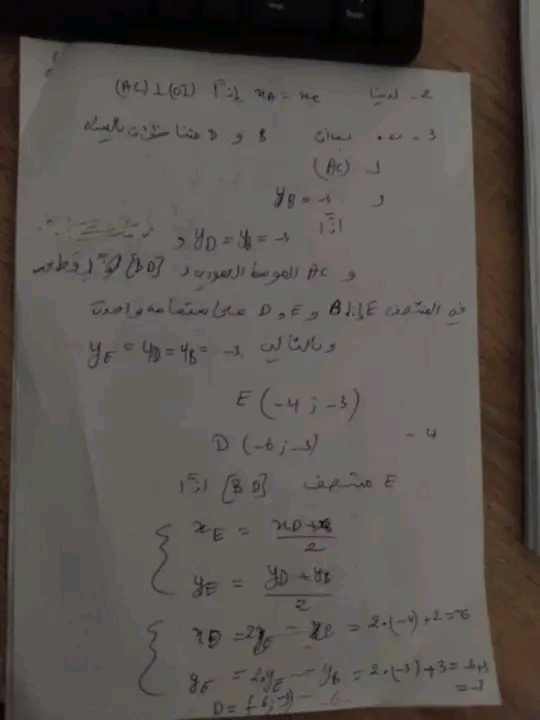 2 - لدينا x_A = x_C إذاً (AC) ⊥ (OI)
3 - بما أن B و D متماثلتان بالنسبة
لـ (AC)
و y_B = -3
إذاً
y_D = y_B = -3 و
و AC الموسط العمودي لـ [BD]
في المنتصف E إذاً B و E و D على استقامة واحدة
وبالتالي y_E = y_D = y_B = -3
E (-4 ; -3)
4 - D (-6 ; -3)
E منتصف [BD] إذاً
x_E = x_D + x_B / 2
y_E = y_D + y_B / 2
= 2·(-4) + 2 = -6
y_E = 2·y_E - y_B = 2·(-3) + 3 = -6+3
= -3
D = (-6 ; -3)